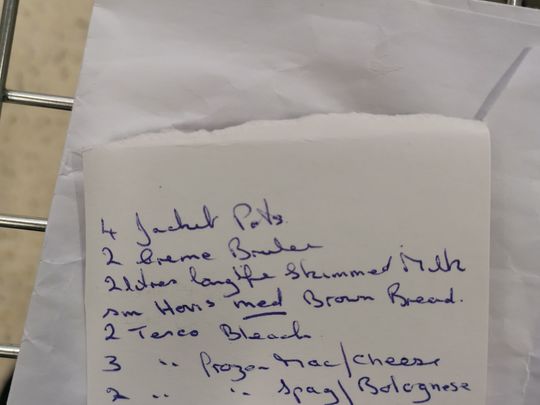 4 Jacket Pots.
2 Creme Brulee
2 Longlife Skimmed Milk
sm Hovis med Brown Bread.
2 Tesco Bleach
3 " Frozen Mac/Cheese
2 " " Spag/Bolognese